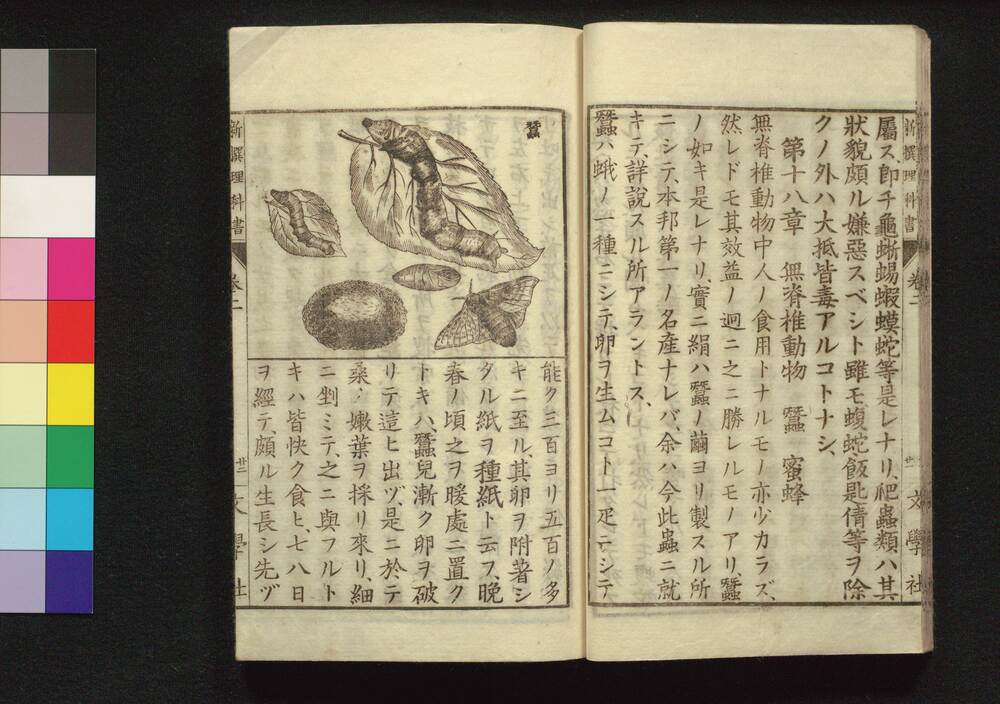 屬ス、卽チ龜蜥蜴蝦蟆蛇等是レナリ、爬蟲類ハ其
狀貌頗ル嫌惡スベシト雖モ蝮蛇飯匙倩等ヲ除
クノ外ハ大抵皆毒アルコトナシ、
第十八章 無脊椎動物 蠶 蜜蜂
無脊椎動物中人ノ食用トナルモノ亦少カラズ、
然レドモ其效益ノ迥ニ之ニ勝レルモノアリ、蠶
ノ如キ是レナリ、實ニ絹ハ蠶ノ繭ヨリ製スル所
ニシテ、本邦第一ノ名產ナレバ、余ハ今此蟲ニ就
キテ、詳說スル所アラントス、
蠶ハ蛾ノ一種ニシテ、卵ヲ生ムコト一疋ニシテ
新撰理科書 卷二 廿一 文學社
蠶
能ク三百ヨリ五百ノ多
キニ至ル、其卵ヲ附著シ
タル紙ヲ種紙ト云フ、晚
春ノ頃之ヲ暖處ニ置ク
トキハ、蠶兒漸ク卵ヲ破
リテ這ヒ出ヅ、是ニ於テ
桑ノ嫩葉ヲ採リ來リ、細
ニ剉ミテ、之ニ與フルト
キハ皆快ク食ヒ、七八日
ヲ經テ、頗ル生長シ先ヅ
新撰理科書 卷二 廿二 文學社